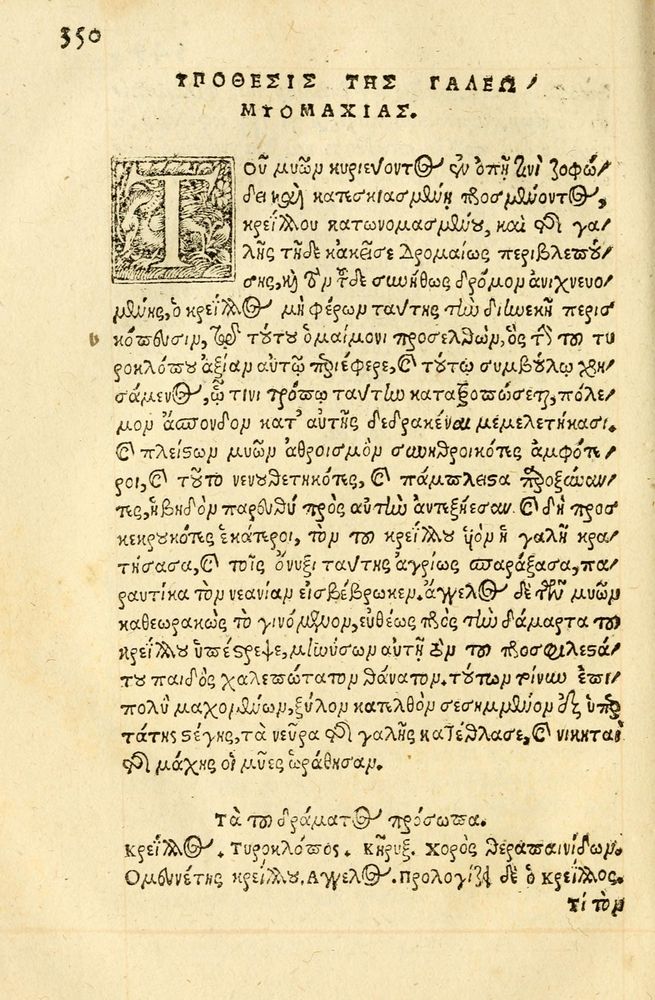 350
ΥΠΟΘΕΣΙΣ ΤΗΣ ΓΑΛΕΩ/
ΜΥΟΜΑΧΙΑΣ.
Τοῦ μυῶν κυριεύοντος ἐν ὀπῇ τινὶ ζοφώ/
δει καὶ κατεσκιασμένῃ προσμένοντος,
κρεΐλλου κατωνομασμένου, καὶ τῆς γα/
λῆς τῇδε κἀκεῖσε δρομαίως περιβλεπού/
σης, καὶ τὸν τῇδε συνήθως δρόμον ἀνιχνευο/
μένης, ὁ κρεΐλλος μὴ φέρων ταύτης τὴν διηνεκῆ περισ
κόπευσιν, τούτου ὁμαίμονι προσελθὼν, ὃς τὴν τοῦ τυ
ροκλόπου ἀξίαν αὐτῷ προέφερε, καὶ τούτῳ συμβούλῳ χρη/
σάμενος, ᾧ τινι τρόπῳ ταύτην κατατροπώσεται, πόλε/
μον ἄσπονδον κατ᾽ αὐτῆς δεδρακέναι μεμελετήκασι.
καὶ πλείστων μυῶν ἀθροισμὸν συνηθροικότες ἀμφότε/
ροι, καὶ τοῦτο νενουθετηκότες, καὶ πάμπλειστα προξαν/
τες, ἡβηδὸν παρευθὺ πρὸς αὐτὴν ἀντεξῄεσαν. καὶ δὴ προσ
κεκρουκότες ἑκάτεροι, τὸν τοῦ κρεΐλλου υἱὸν ἡ γαλῆ κρα/
τήσασα, καὶ τοῖς ὄνυξι ταύτης ἀγρίως σπαράξασα, πα/
ραυτίκα τὸν νεανίαν εἰσβέβρωκεν. ἄγγελος δὲ τῶν μυῶν
καθεωρακὼς τὸ γινόμενον, εὐθέως πρὸς τὴν δάμαρτα τοῦ
κρεΐλλου ὑπέστρεψε, μηνύσων αὐτῇ τὸν τοῦ προσφιλεστά/
του παιδὸς χαλεπώτατον θάνατον. τούτων τοίνυν ἐπι/
πολὺ μαχομένων, ξύλον κατελθὸν σεσημμένον ἐξ ὑπερ
τάτης στέγης, τὰ νεῦρα τῆς γαλῆς κατέθλασε, καὶ νικηταὶ
τῆς μάχης οἱ μύες ὡράθησαν.
Τὰ τοῦ δράματος πρόσωπα.
Κρεΐλλος. Τυροκλόπος. Κῆρυξ. Χορὸς θεραπαινίδων.
Ομευνέτης κρεΐλλου. Αγγελος. Προλογίζει δὲ ὁ Κρεΐλλος.
Τί τὸν